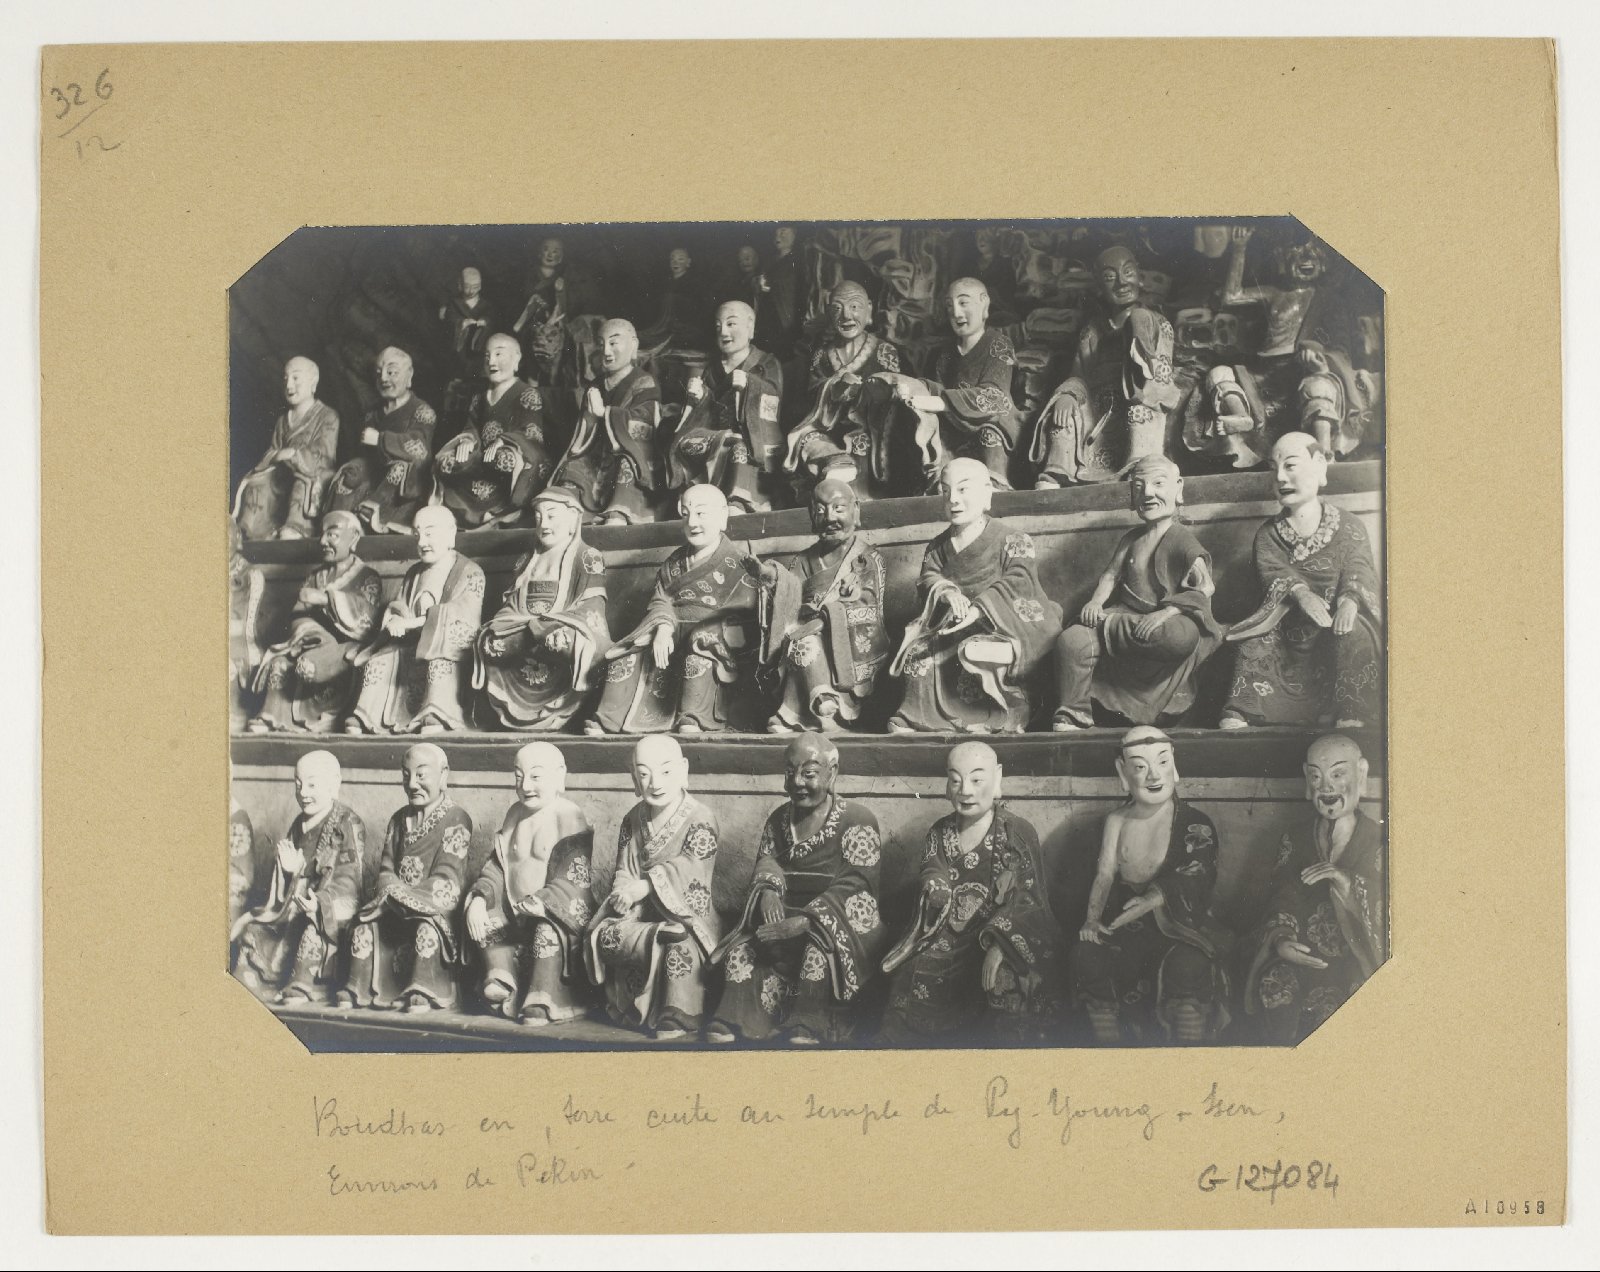 326
12
Boudhas en terre cuite au temple de Py-Young-tsen,
Environs de Pékin
G127084
A10958